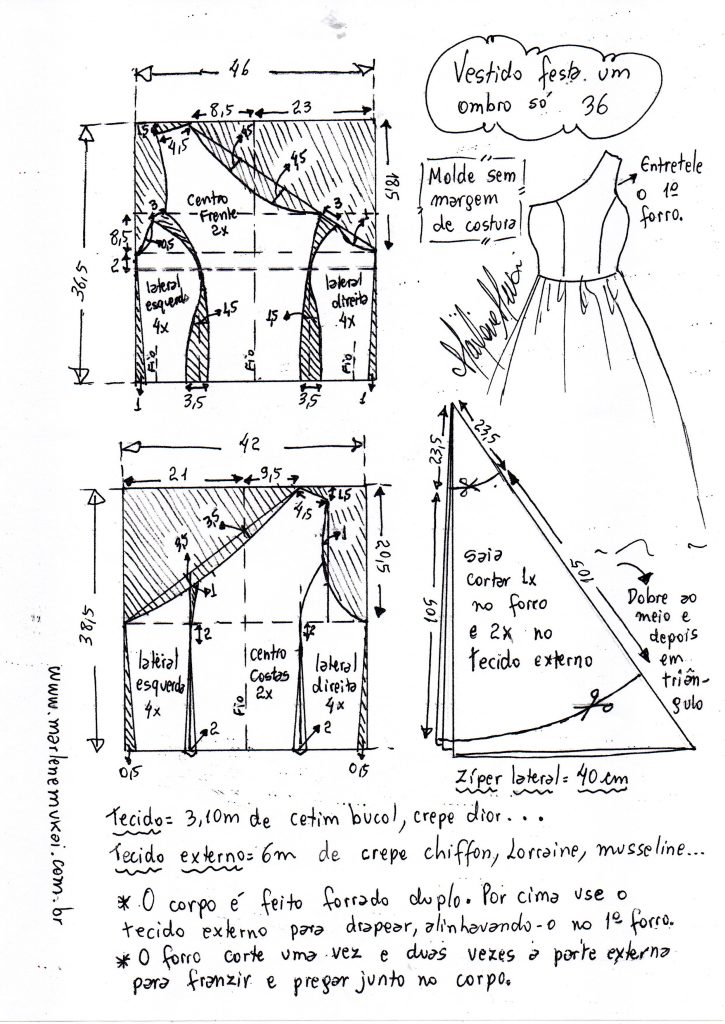 Vestido festa um
ombro só 36
Molde sem
margem
de costura
Entretele
o 1º
forro.
46
8,5
23
1,5
4,5
4,5
4,5
18,5
3
3
Centro
Frente
2x
8,5
0,5
2
36,5
lateral
esquerda
4x
1,5
1,5
lateral
direita
4x
Fio
Fio
Fio
1
3,5
3,5
1
42
21
9,5
3,5
4,5
1,5
1
20,5
1
38,5
2
2
lateral
esquerda
4x
Centro
Costas
2x
lateral
direita
4x
Fio
2
2
0,5
0,5
23,5
23,5
105
105
saia
cortar 1x
no forro
e 2x no
tecido externo
Dobre ao
meio e
depois
em
triân-
gulo
Zíper lateral = 40 cm
www.marlenemukai.com.br
Tecido = 3,10m de cetim bucol, crepe dior...
Tecido externo = 6m de crepe chiffon, Lorraine, musseline...
* O corpo é feito forrado duplo. Por cima use o
tecido externo para drapear, alinhavando-o no 1º forro.
* O forro corte uma vez e duas vezes a parte externa
para franzir e pregar junto no corpo.